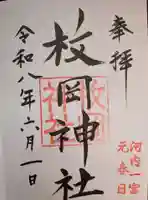 奉拝
河内一宮
元春日
枚岡神社
令和八年六月一日